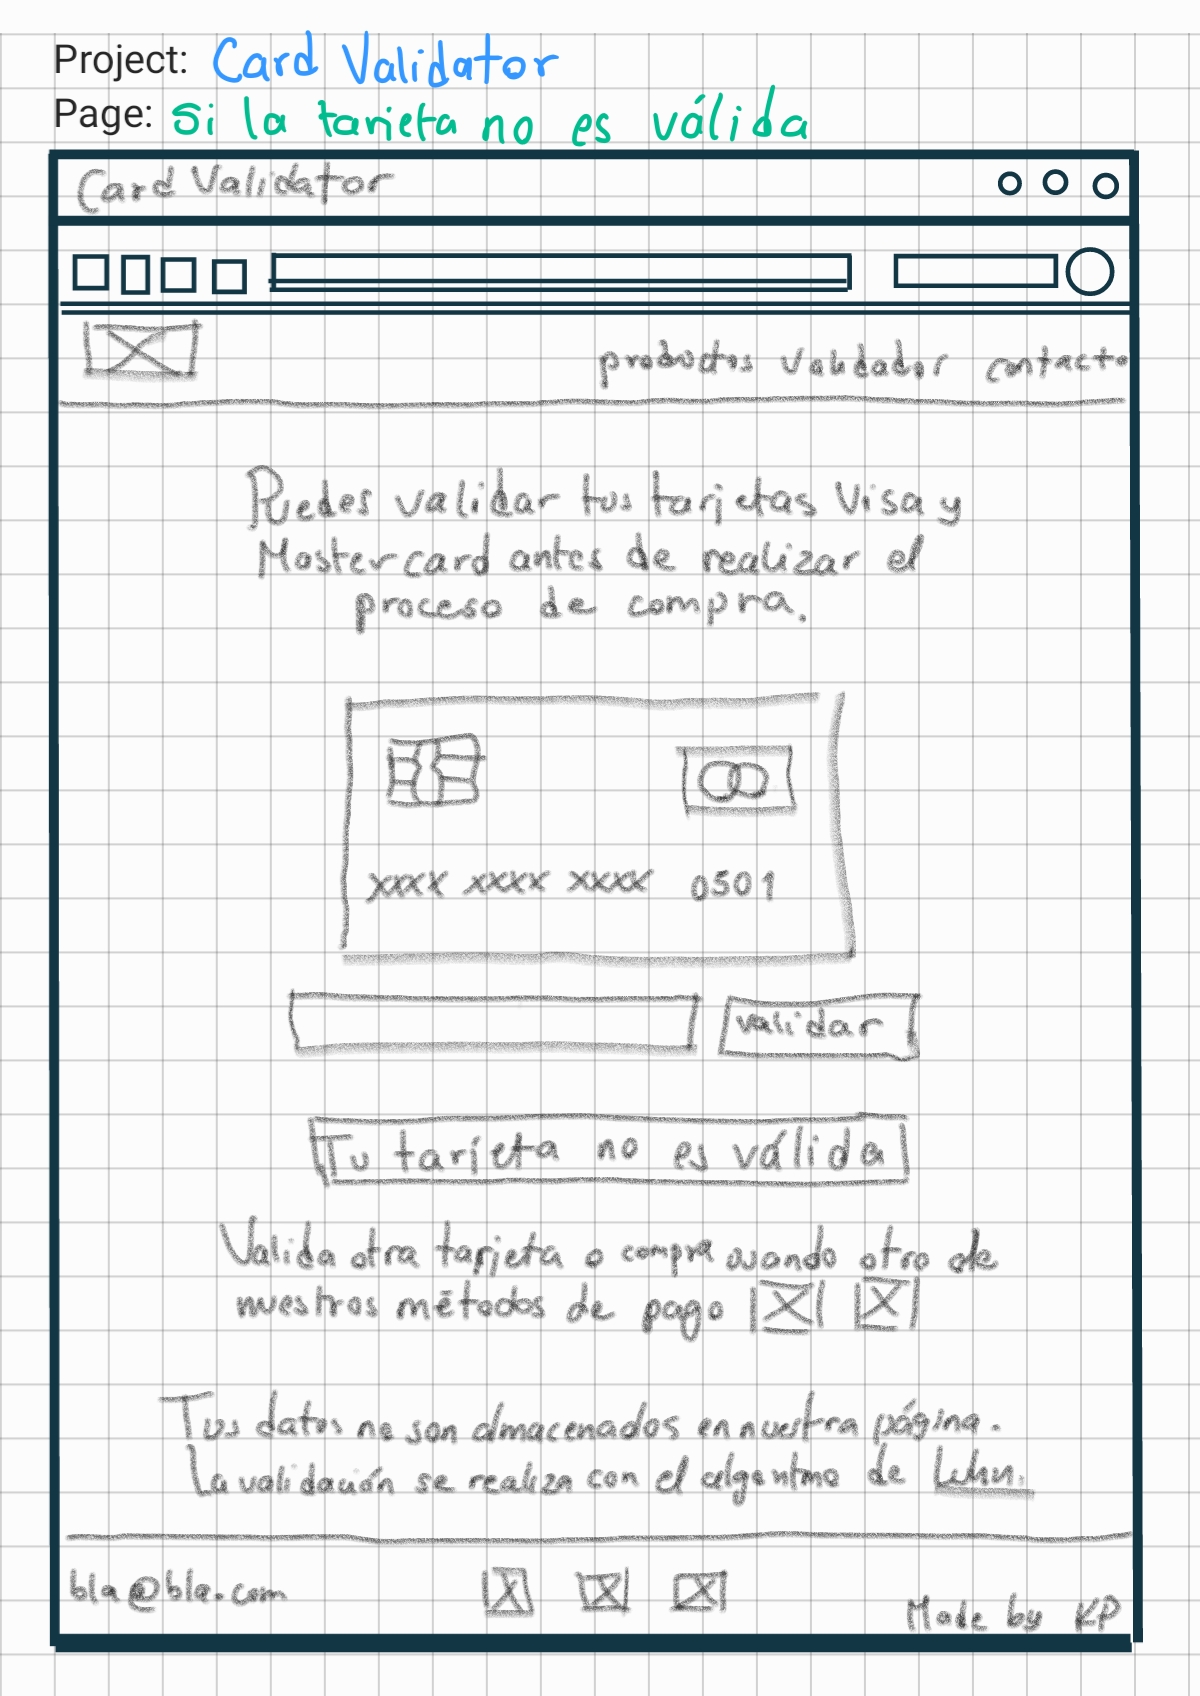 Project: Card Validator
Page: Si la tarjeta no es válida
Card Validator
productos validador contacto
Puedes validar tus tarjetas Visa y
Mastercard antes de realizar el
proceso de compra.
xxxx xxxx xxxx 0501
validar
Tu tarjeta no es válida
Valida otra tarjeta o compra usando otro de
nuestros métodos de pago
Tus datos no son almacenados en nuestra página.
La validación se realiza con el algoritmo de Luhn.
bla@bla.com
Made by KP